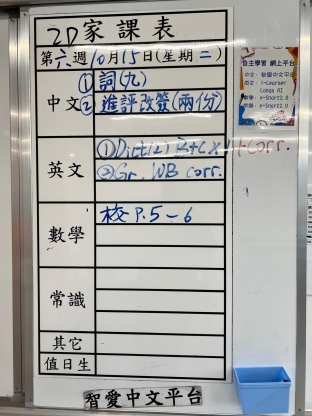 2D家課表
第六週10月15日(星期二)
中文
①詞(九)
②進評改簽(兩份)
英文
①Dict(2) 三+c x 1+corr.
②Gr. WB corr.
數學
校 P.5-6
常識
其它
值日生
智愛中文平台
自主學習 網上平台
中文: 智愛中文平台
英文: i-Learner
Longo AI
數學: e-Smart2.0
常識: e-Smart2.0